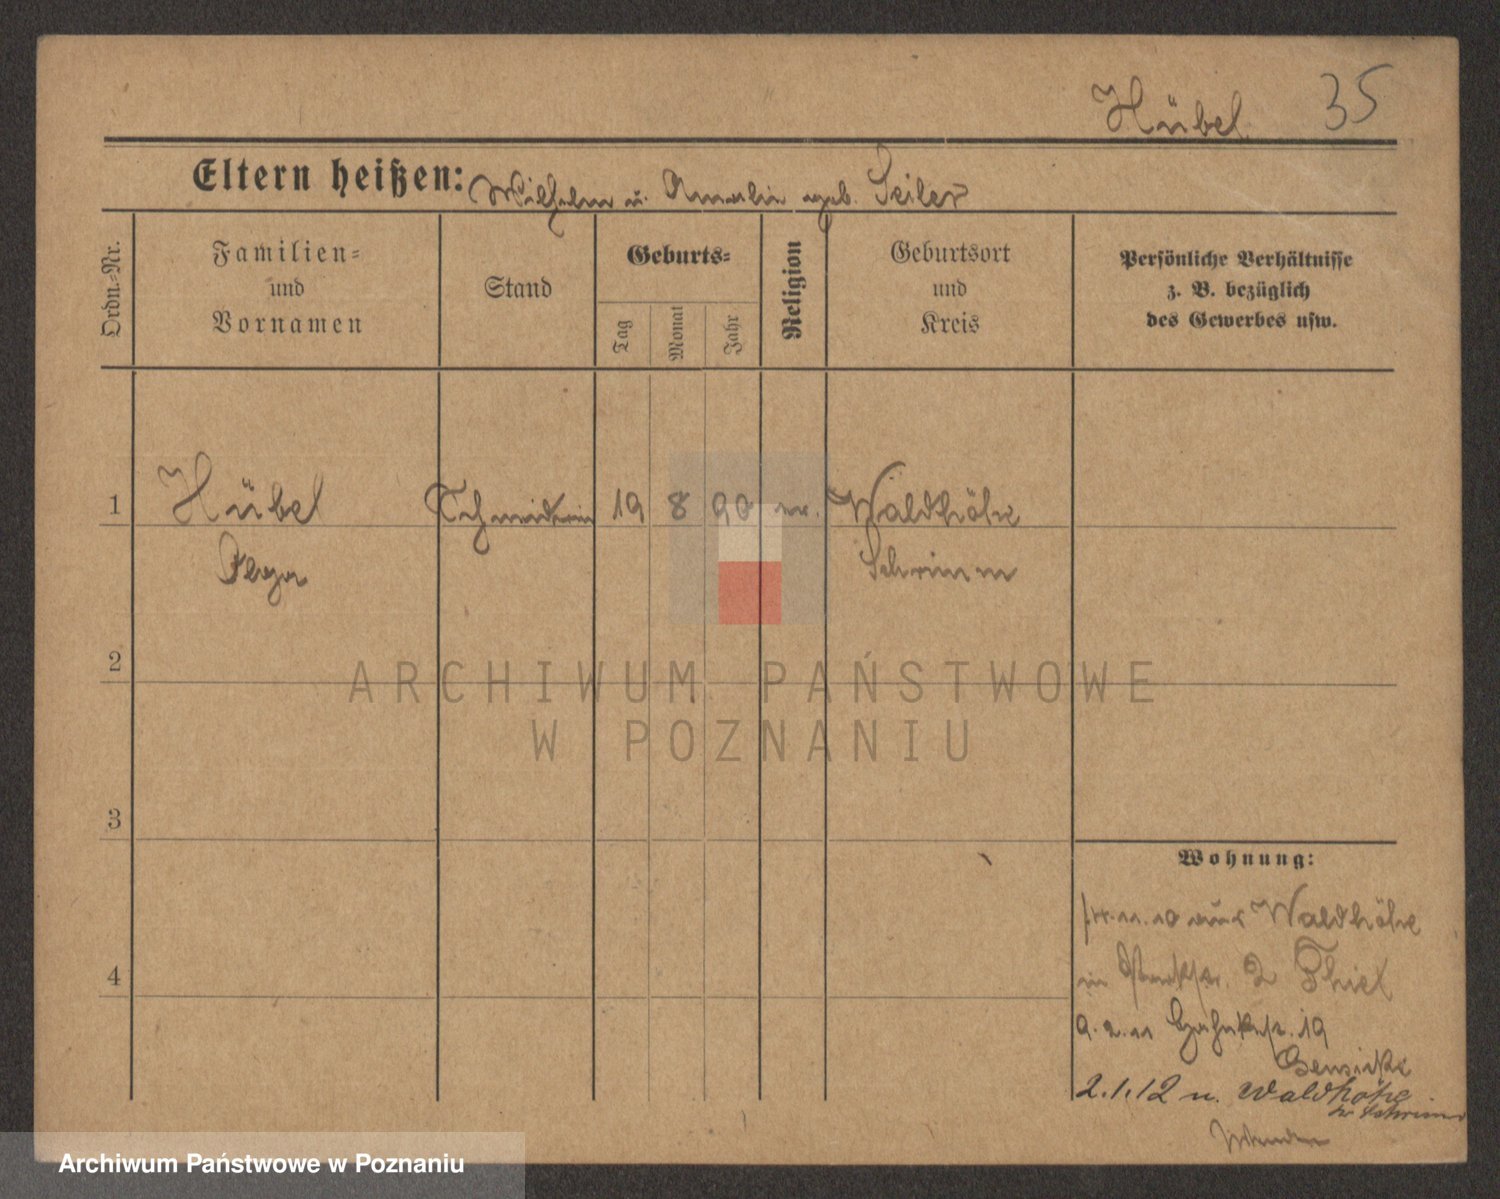 Hübel 35
Eltern heißen: Wilhelm u. Amalie geb. Seiler
Ordn.-Nr.
Familien-
und
Vornamen
Stand
Geburts-
Tag
Monat
Jahr
Religion
Geburtsort
und
Kreis
Persönliche Verhältnisse
z. B. bezüglich
des Gewerbes usw.
1 Hübel 19 8 90 ev. Waldhöhe
Schrimm
2
ARCHIWUM PAŃSTWOWE
W POZNANIU
3
Wohnung:
11.10 aus Waldhöhe
in 2 Thiel
4
9.2.11 19
2.1.12 n. Waldhöhe
Kr Schrimm
Archiwum Państwowe w Poznaniu